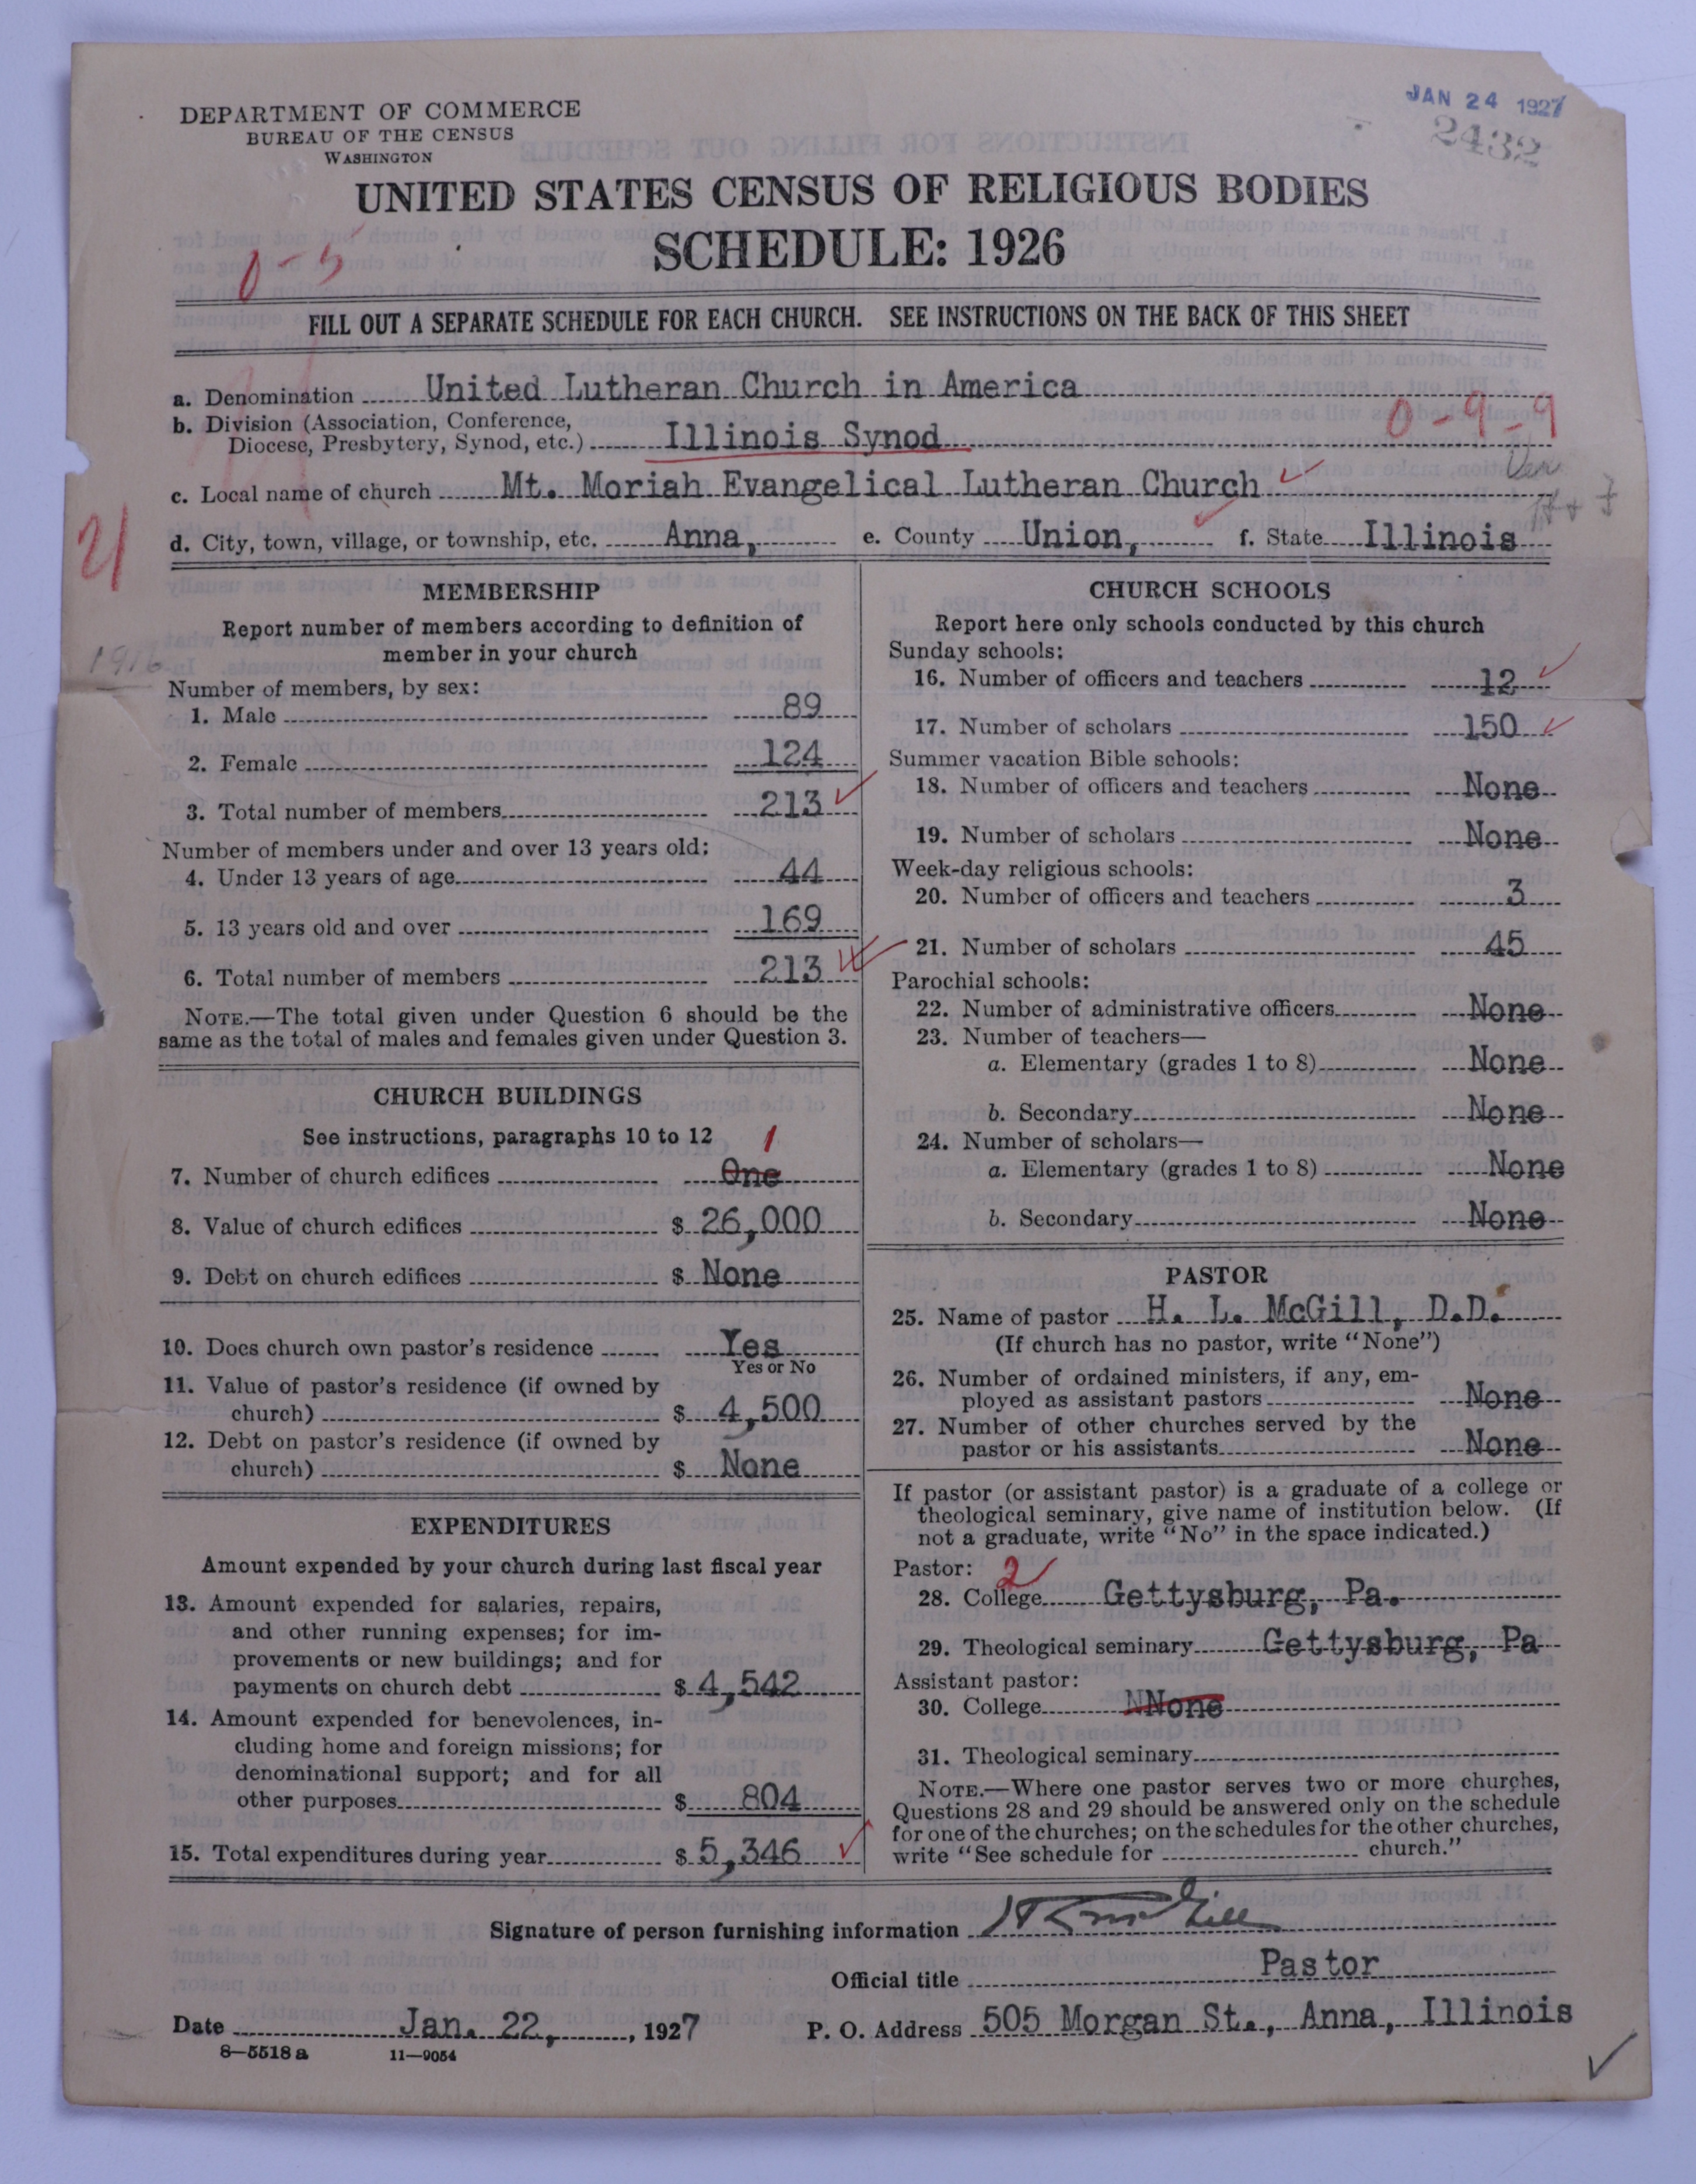 JAN 24 1927
2432
DEPARTMENT OF COMMERCE
BUREAU OF THE CENSUS
WASHINGTON
UNITED STATES CENSUS OF RELIGIOUS BODIES
SCHEDULE: 1926
0-5
FILL OUT A SEPARATE SCHEDULE FOR EACH CHURCH. SEE INSTRUCTIONS ON THE BACK OF THIS SHEET
a. Denomination United Lutheran Church in America
0-9-9
b. Division (Association, Conference,
Diocese, Presbytery, Synod, etc.) Illinois Synod
c. Local name of church Mt. Moriah Evangelical Lutheran Church
d. City, town, village, or township, etc. Anna, e. County Union, f. State Illinois
21
MEMBERSHIP
Report number of members according to definition of
member in your church
1916
Number of members, by sex:
1. Male 89
2. Female 124
3. Total number of members 213
Number of members under and over 13 years old:
4. Under 13 years of age 44
5. 13 years old and over 169
6. Total number of members 213
NOTE.—The total given under Question 6 should be the
same as the total of males and females given under Question 3.
CHURCH BUILDINGS
See instructions, paragraphs 10 to 12
1
7. Number of church edifices One
8. Value of church edifices $ 26,000
9. Debt on church edifices $ None
10. Does church own pastor's residence Yes
Yes or No
11. Value of pastor's residence (if owned by
church) $ 4,500
12. Debt on pastor's residence (if owned by
church) $ None
EXPENDITURES
Amount expended by your church during last fiscal year
13. Amount expended for salaries, repairs,
and other running expenses; for im-
provements or new buildings; and for
payments on church debt $ 4,542
14. Amount expended for benevolences, in-
cluding home and foreign missions; for
denominational support; and for all
other purposes $ 804
15. Total expenditures during year $ 5,346
CHURCH SCHOOLS
Report here only schools conducted by this church
Sunday schools:
16. Number of officers and teachers 12
17. Number of scholars 150
Summer vacation Bible schools:
18. Number of officers and teachers None
19. Number of scholars None
Week-day religious schools:
20. Number of officers and teachers 3
21. Number of scholars 45
Parochial schools:
22. Number of administrative officers None
23. Number of teachers—
a. Elementary (grades 1 to 8) None
b. Secondary None
24. Number of scholars—
a. Elementary (grades 1 to 8) None
b. Secondary None
PASTOR
25. Name of pastor H. L. McGill, D.D.
(If church has no pastor, write "None")
26. Number of ordained ministers, if any, em-
ployed as assistant pastors None
27. Number of other churches served by the
pastor or his assistants None
If pastor (or assistant pastor) is a graduate of a college or
theological seminary, give name of institution below. (If
not a graduate, write "No" in the space indicated.)
Pastor: 2
28. College Gettysburg, Pa.
29. Theological seminary Gettysburg, Pa
Assistant pastor:
30. College NNone
31. Theological seminary
NOTE.—Where one pastor serves two or more churches,
Questions 28 and 29 should be answered only on the schedule
for one of the churches; on the schedules for the other churches,
write "See schedule for church."
Signature of person furnishing information H L McGill
Official title Pastor
Date Jan. 22, , 1927 P. O. Address 505 Morgan St., Anna, Illinois
8—5518 a 11—9054